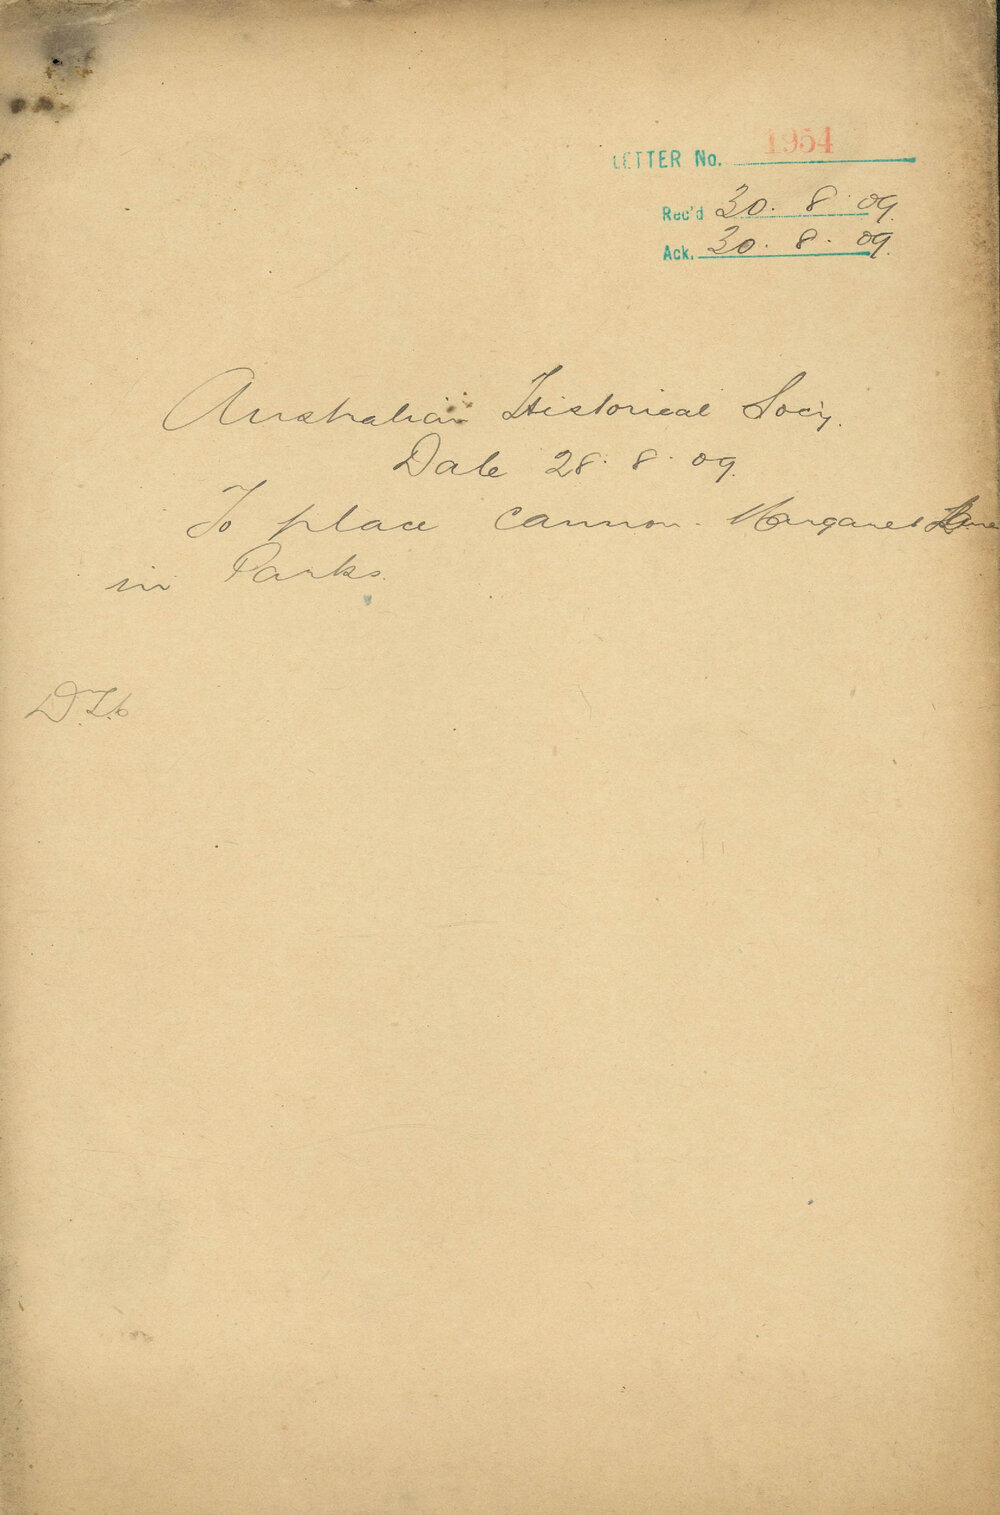 LETTER No. 1954
Rec'd 30. 8. 09.
Ack. 30. 8. 09.
Australian Historical Socy.
Date 28. 8. 09.
To place cannon - Margaret Lane
in Parks.